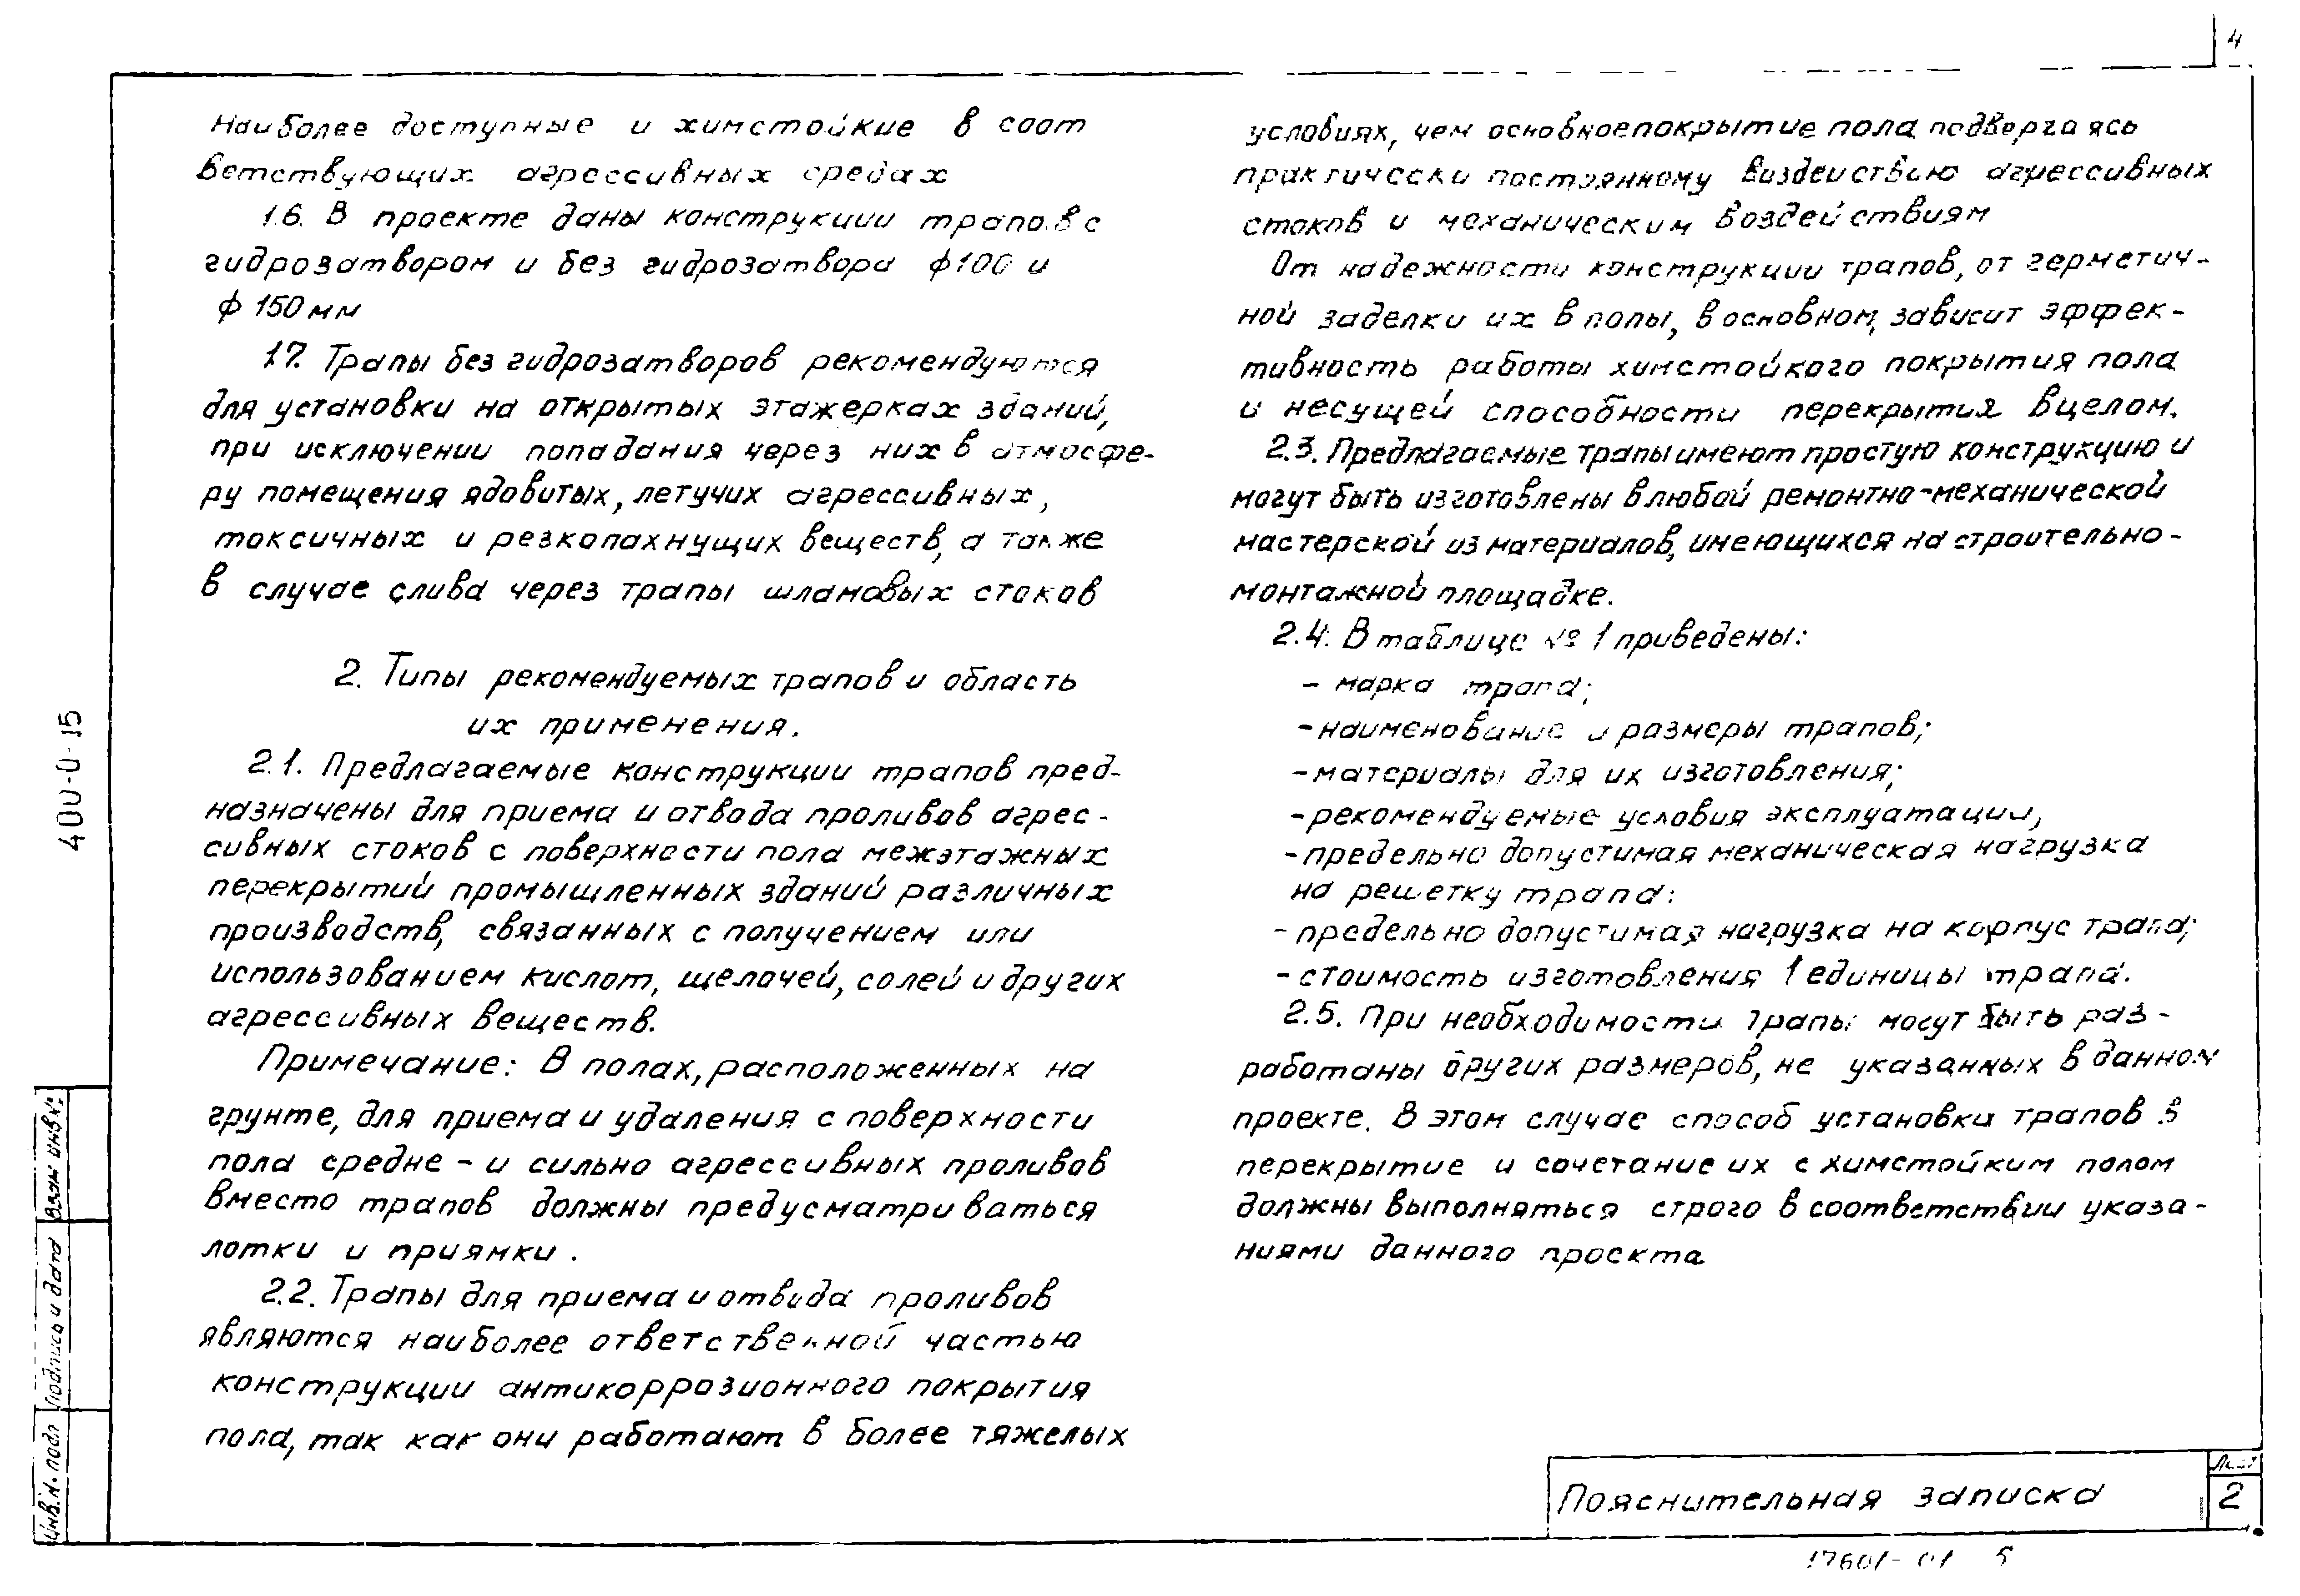 4
Наиболее доступные и химстойкие в соот
ветствующих агрессивных средах
1.6. В проекте даны конструкции трапов с
гидрозатвором и без гидрозатвора ф100 и
ф 150 мм
1.7. Трапы без гидрозатворов рекомендуются
для установки на открытых этажерках зданий,
при исключении попадания через них в атмосфе-
ру помещения ядовитых, летучих агрессивных,
токсичных и резкопахнущих веществ, а также
в случае слива через трапы шламовых стоков
2. Типы рекомендуемых трапов и область
их применения.
2.1. Предлагаемые конструкции трапов пред-
назначены для приема и отвода проливов агрес-
сивных стоков с поверхности пола межэтажных
перекрытий промышленных зданий различных
производств, связанных с получением или
использованием кислот, щелочей, солей и других
агрессивных веществ.
Примечание: В полах, расположенных на
грунте, для приема и удаления с поверхности
пола средне - и сильно агрессивных проливов
вместо трапов должны предусматриваться
лотки и приямки.
2.2. Трапы для приема и отвода проливов
являются наиболее ответственной частью
конструкции антикоррозионного покрытия
пола, так как они работают в более тяжелых
условиях, чем основное покрытие пола подвергаясь
практически постоянному воздействию агрессивных
стоков и механическим воздействиям
От надежности конструкции трапов, от герметич-
ной заделки их в полы, в основном, зависит эффек-
тивность работы химстойкого покрытия пола
и несущей способности перекрытия вцелом.
2.3. Предлагаемые трапы имеют простую конструкцию и
могут быть изготовлены в любой ремонтно-механической
мастерской из материалов, имеющихся на строительно-
монтажной площадке.
2.4. В таблице № 1 приведены:
- марка трапа;
- наименование и размеры трапов;
- материалы для их изготовления;
- рекомендуемые условия эксплуатации,
- предельно допустимая механическая нагрузка
на решетку трапа:
- предельно допустимая нагрузка на корпус трапа;
- стоимость изготовления 1 единицы трапа.
2.5. При необходимости трапы могут быть раз-
работаны других размеров, не указанных в данном
проекте. В этом случае способ установки трапов в
перекрытие и сочетание их с химстойким полом
должны выполняться строго в соответствии указа-
ниями данного проекта
400-0-15
Взам инв №
Подпись и дата
Инв. № подл
Пояснительная записка
Лист
2
17601-01 5